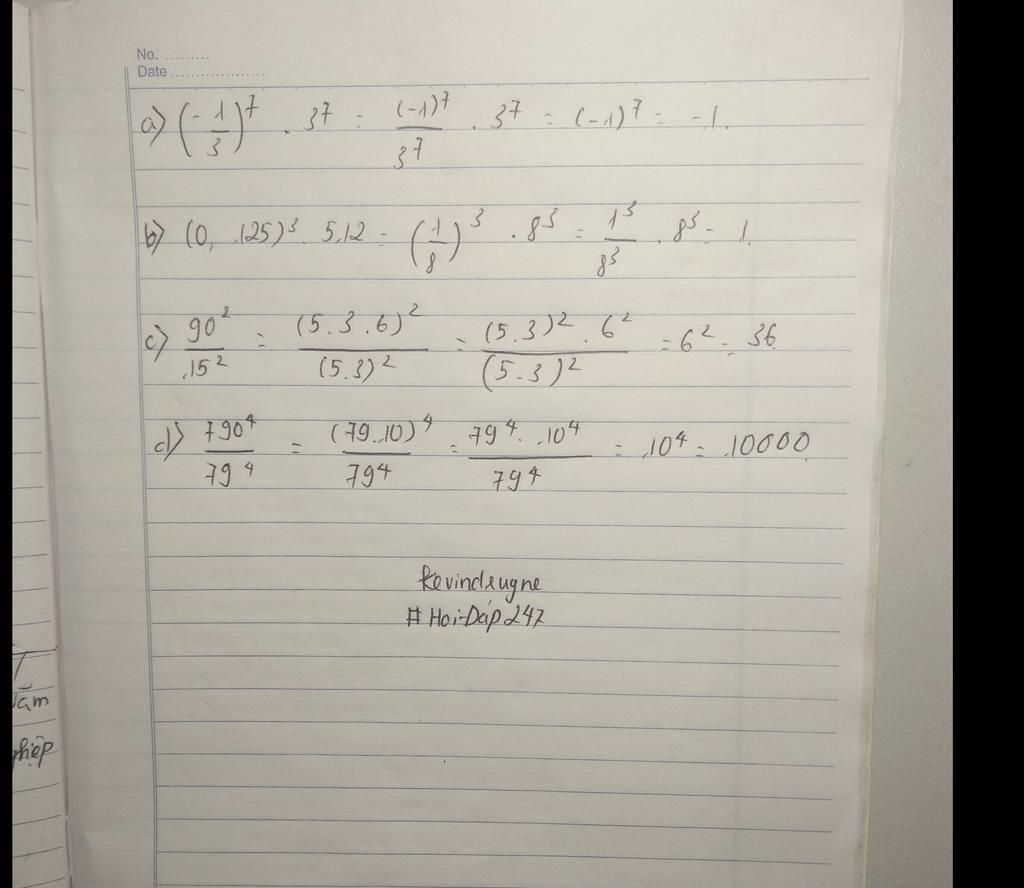 No. .........
Date ...................
a) (-1/3)^7 . 3^7 = (-1)^7/3^7 . 3^7 = (-1)^7 = -1.
b) (0,125)^3 . 512 = (1/8)^3 . 8^3 = 1^3/8^3 . 8^3 = 1.
c) 90^2/15^2 = (5.3.6)^2/(5.3)^2 = (5.3)^2 . 6^2/(5.3)^2 = 6^2 = 36
d) 790^4/79^4 = (79.10)^4/79^4 = 79^4 . 10^4/79^4 = 10^4 = 10000
# Hoi-Dáp 247